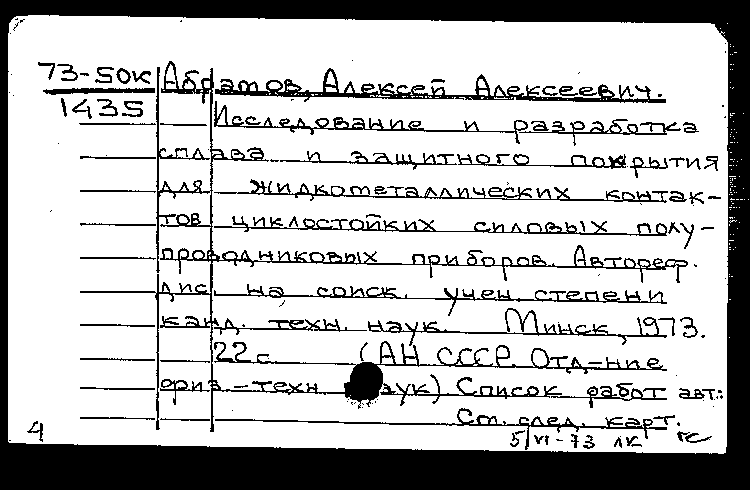 73-50к Абрамов, Алексей Алексеевич.
1435
Исследование и разработка
сплава и защитного покрытия
для жидкометаллических контак-
тов циклостойких силовых полу-
проводниковых приборов. Автореф.
дис. на соиск. учен. степени
канд. техн. наук. Минск, 1973.
22 с. (АН СССР. Отд-ние
физ.-техн. наук) Список работ авт.:
См. след. карт.
4 5/VI-73 лк